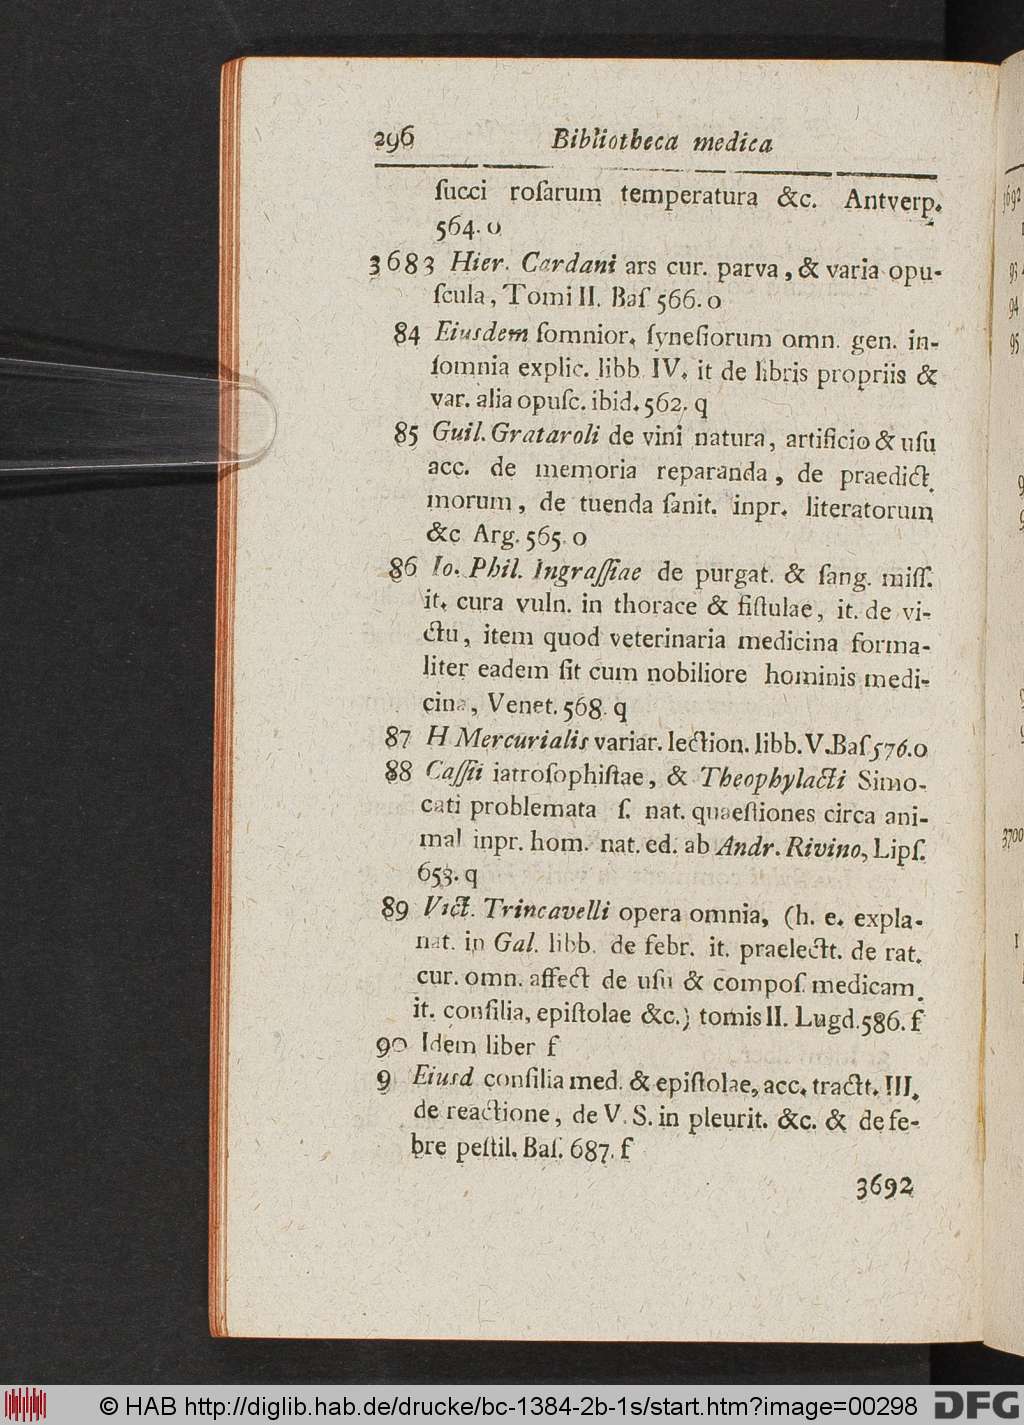 296 Bibliotheca medica
ſucci roſarum temperatura &c. Antverp.
564. o
3683 Hier. Cardani ars cur. parva, & varia opu-
ſcula, Tomi II. Baſ 566. o
84 Eiusdem ſomnior. ſyneſiorum omn. gen. in-
ſomnia explic. libb IV. it de libris propriis &
var. alia opuſc. ibid. 562. q
85 Guil. Grataroli de vini natura, artificio & uſu
acc. de memoria reparanda, de praedict.
morum, de tuenda ſanit. inpr. literatorum
&c Arg. 565. o
86 Io. Phil. Ingraſſiae de purgat. & ſang. miſſ.
it. cura vuln. in thorace & fiſtulae, it. de vi-
ctu, item quod veterinaria medicina forma-
liter eadem ſit cum nobiliore hominis medi-
cina, Venet. 568. q
87 H Mercurialis variar. lection. libb. V. Baſ 576. o
88 Caſſii iatroſophiſtae, & Theophylacti Simo-
cati problemata ſ. nat. quaeſtiones circa ani-
mal inpr. hom. nat. ed. ab Andr. Rivino, Lipſ.
653. q
89 Vict. Trincavelli opera omnia, (h. e. expla-
nat. in Gal. libb. de febr. it. praelectt. de rat.
cur. omn. affect de uſu & compoſ. medicam.
it. conſilia, epiſtolae &c.) tomis II. Lugd. 586. f
90 Idem liber f
9 Eiusd conſilia med. & epiſtolae, acc. tractt. III.
de reactione, de V. S. in pleurit. &c. & de fe-
bre peſtil. Baſ. 687. f
3692
3692
93
94
95
3700
© HAB http://diglib.hab.de/drucke/bc-1384-2b-1s/start.htm?image=00298
DFG